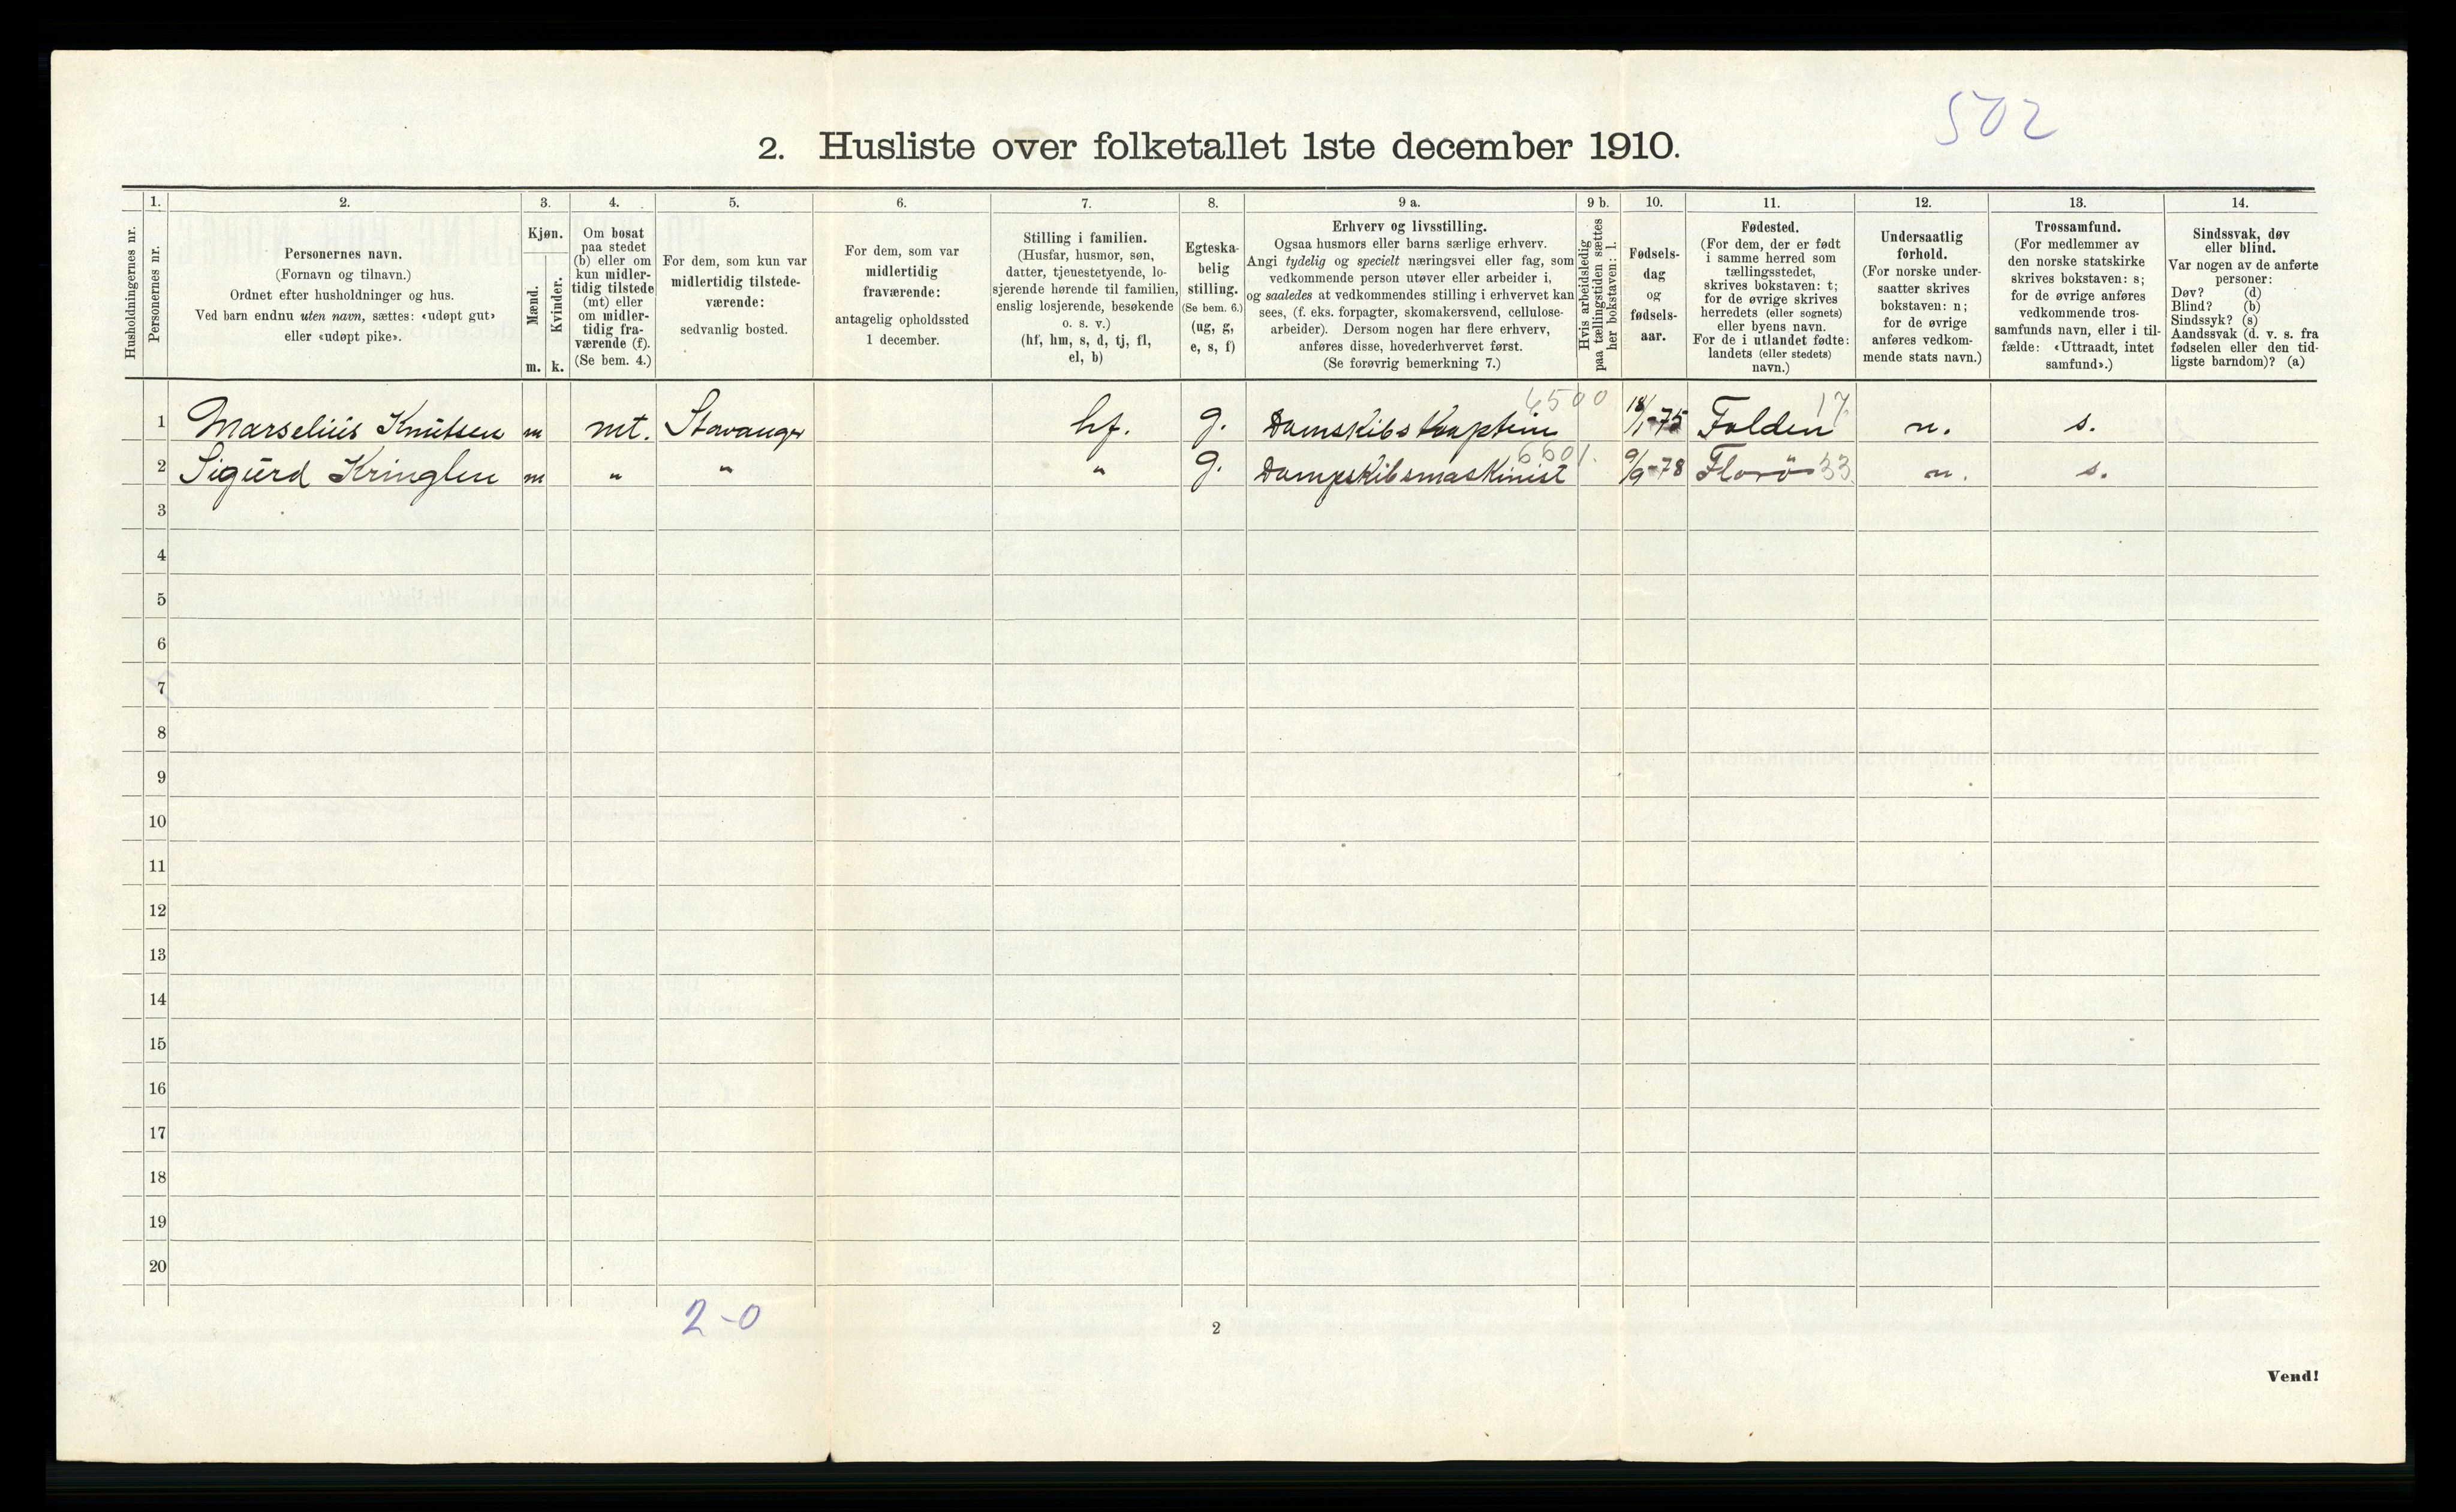 502
2. Husliste over folketallet 1ste december 1910.
Husholdningernes nr.
1.
Personernes nr.
2.
Personernes navn.
(Fornavn og tilnavn.)
Ordnet efter husholdninger og hus.
Ved barn endnu uten navn, sættes: «udøpt gut»
eller «udøpt pike».
3.
Kjøn.
Mænd.
Kvinder.
m. k.
4.
Om bosat
paa stedet
(b) eller om
kun midler-
tidig tilstede
(mt) eller
om midler-
tidig fra-
værende (f).
(Se bem. 4.)
5.
For dem, som kun var
midlertidig tilstede-
værende:
sedvanlig bosted.
6.
For dem, som var
midlertidig
fraværende:
antagelig opholdssted
1 december.
7.
Stilling i familien.
(Husfar, husmor, søn,
datter, tjenestetyende, lo-
sjerende hørende til familien,
enslig losjerende, besøkende
o. s. v.)
(hf, hm, s, d, tj, fl,
el, b)
8.
Egteska-
belig
stilling.
(Se bem. 6.)
(ug, g,
e, s, f)
9 a.
Erhverv og livsstilling.
Ogsaa husmors eller barns særlige erhverv.
Angi tydelig og specielt næringsvei eller fag, som
vedkommende person utøver eller arbeider i,
og saaledes at vedkommendes stilling i erhvervet kan
sees, (f. eks. forpagter, skomakersvend, cellulose-
arbeider). Dersom nogen har flere erhverv,
anføres disse, hovederhvervet først.
(Se forøvrig bemerkning 7.)
9 b.
Hvis arbeidsledig
paa tællingstiden sættes
her bokstaven: l.
10.
Fødsels-
dag
og
fødsels-
aar.
11.
Fødested.
(For dem, der er født
i samme herred som
tællingsstedet,
skrives bokstaven: t;
for de øvrige skrives
herredets (eller sognets)
eller byens navn.
For de i utlandet fødte:
landets (eller stedets)
navn.)
12.
Undersaatlig
forhold.
(For norske under-
saatter skrives
bokstaven: n;
for de øvrige
anføres vedkom-
mende stats navn.)
13.
Trossamfund.
(For medlemmer av
den norske statskirke
skrives bokstaven: s;
for de øvrige anføres
vedkommende tros-
samfunds navn, eller i til-
fælde: «Uttraadt, intet
samfund».)
14.
Sindssvak, døv
eller blind.
Var nogen av de anførte
personer:
Døv? (d)
Blind? (b)
Sindssyk? (s)
Aandssvak (d. v. s. fra
fødselen eller den tid-
ligste barndom)? (a)
1 Marselius Knutsen m mt. Stavanger hf. g. Damskibs Kaptein 6500 18/1-75 Folden 17 n. s.
2 Sigurd Kringlen m " " " g. Dampskibsmaskinist 6601. 9/9-78 Florö 33. n. s.
3
4
5
6
7
8
9
10
11
12
13
14
15
16
17
18
19
20
2-0
2
Vend!